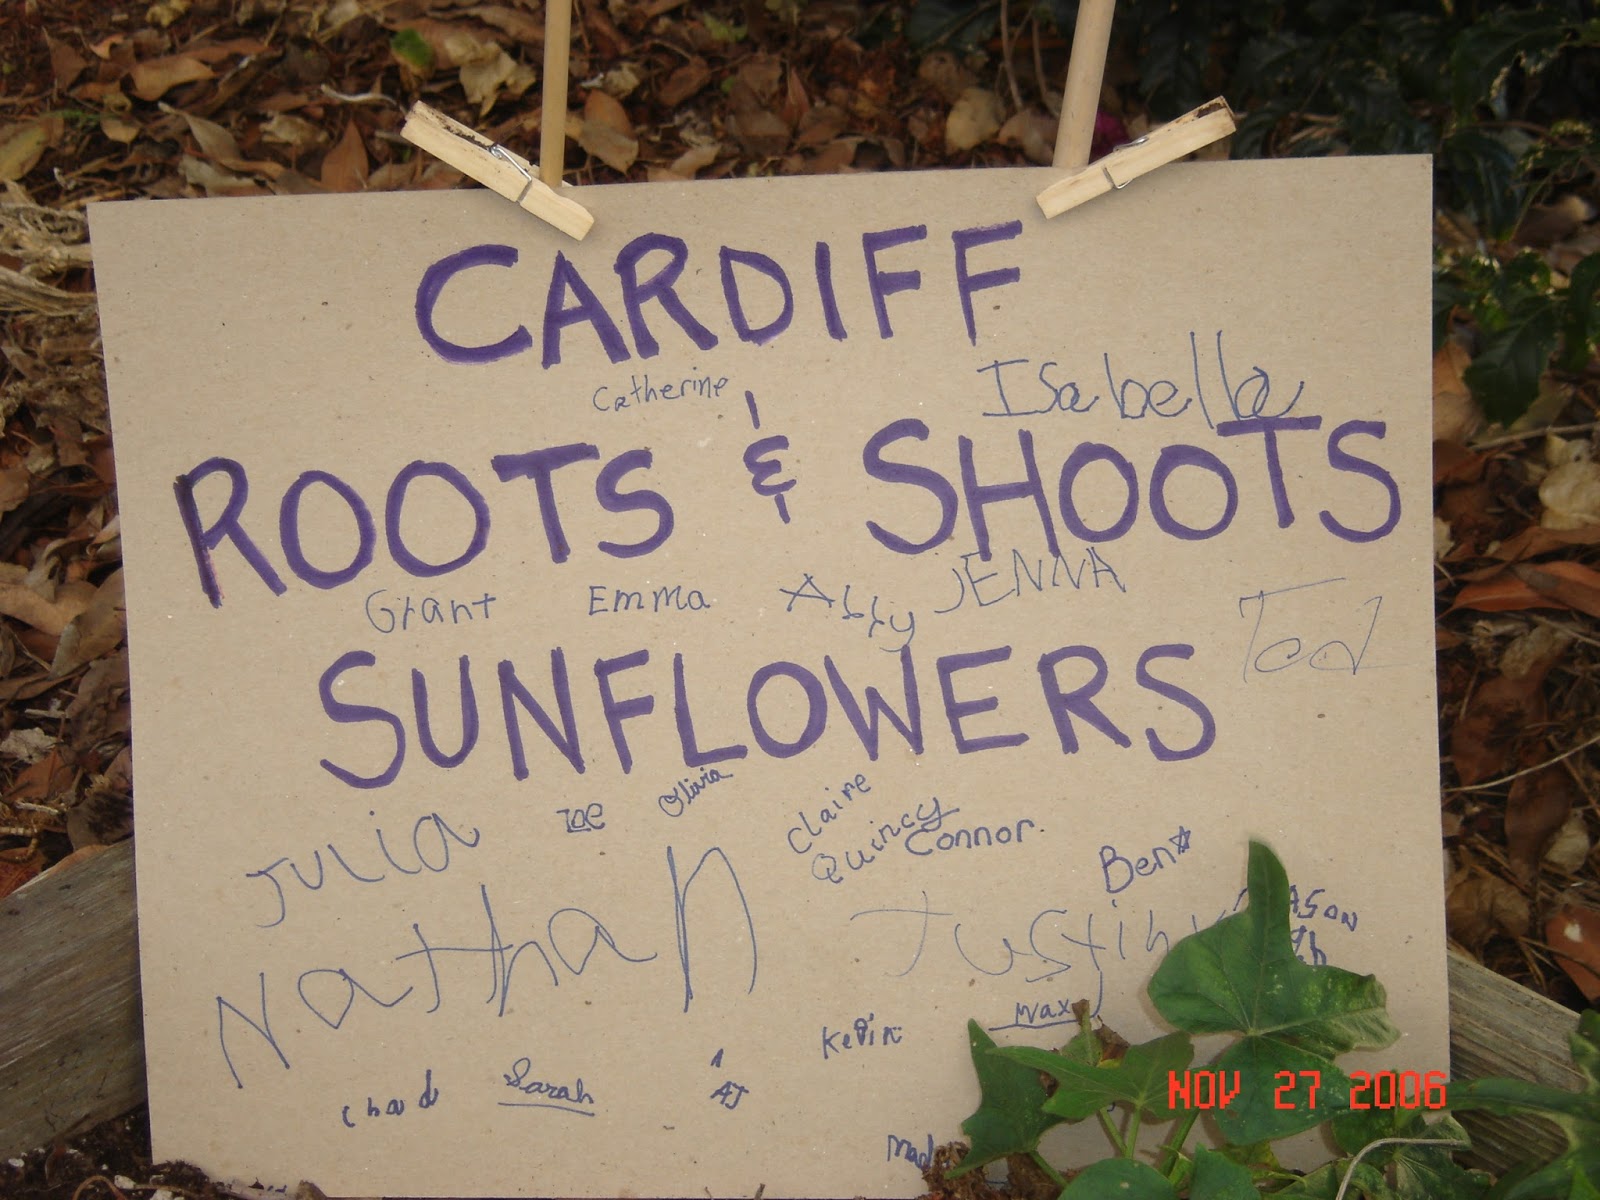 CARDIFF
Catherine Isabella
ROOTS & SHOOTS
Grant Emma Abby JENNA Ted
SUNFLOWERS
Julia Zoe Olivia Claire
Quincy Connor Ben
Nathan Justin
Max
Kevin
Chad Sarah AJ
NOV 27 2006